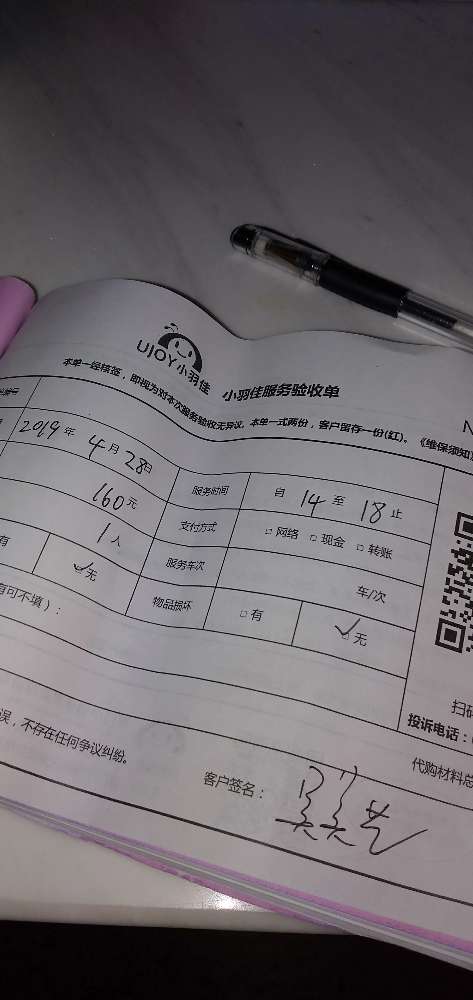 UJOY小羽佳 小羽佳服务验收单
本单一经核签，即视为对本次服务验收无异议。本单一式两份，客户留存一份(红)。《维保须知》
2019年4月28日 服务时间 自 14 至 18 止
160元 支付方式 □网络 □现金 □转账
1人 服务车次 车/次
有 ✓无 物品损坏 □有 ✓无
有可不填）：
扫码
投诉电话：
误，不存在任何争议纠纷。 代购材料总
客户签名：